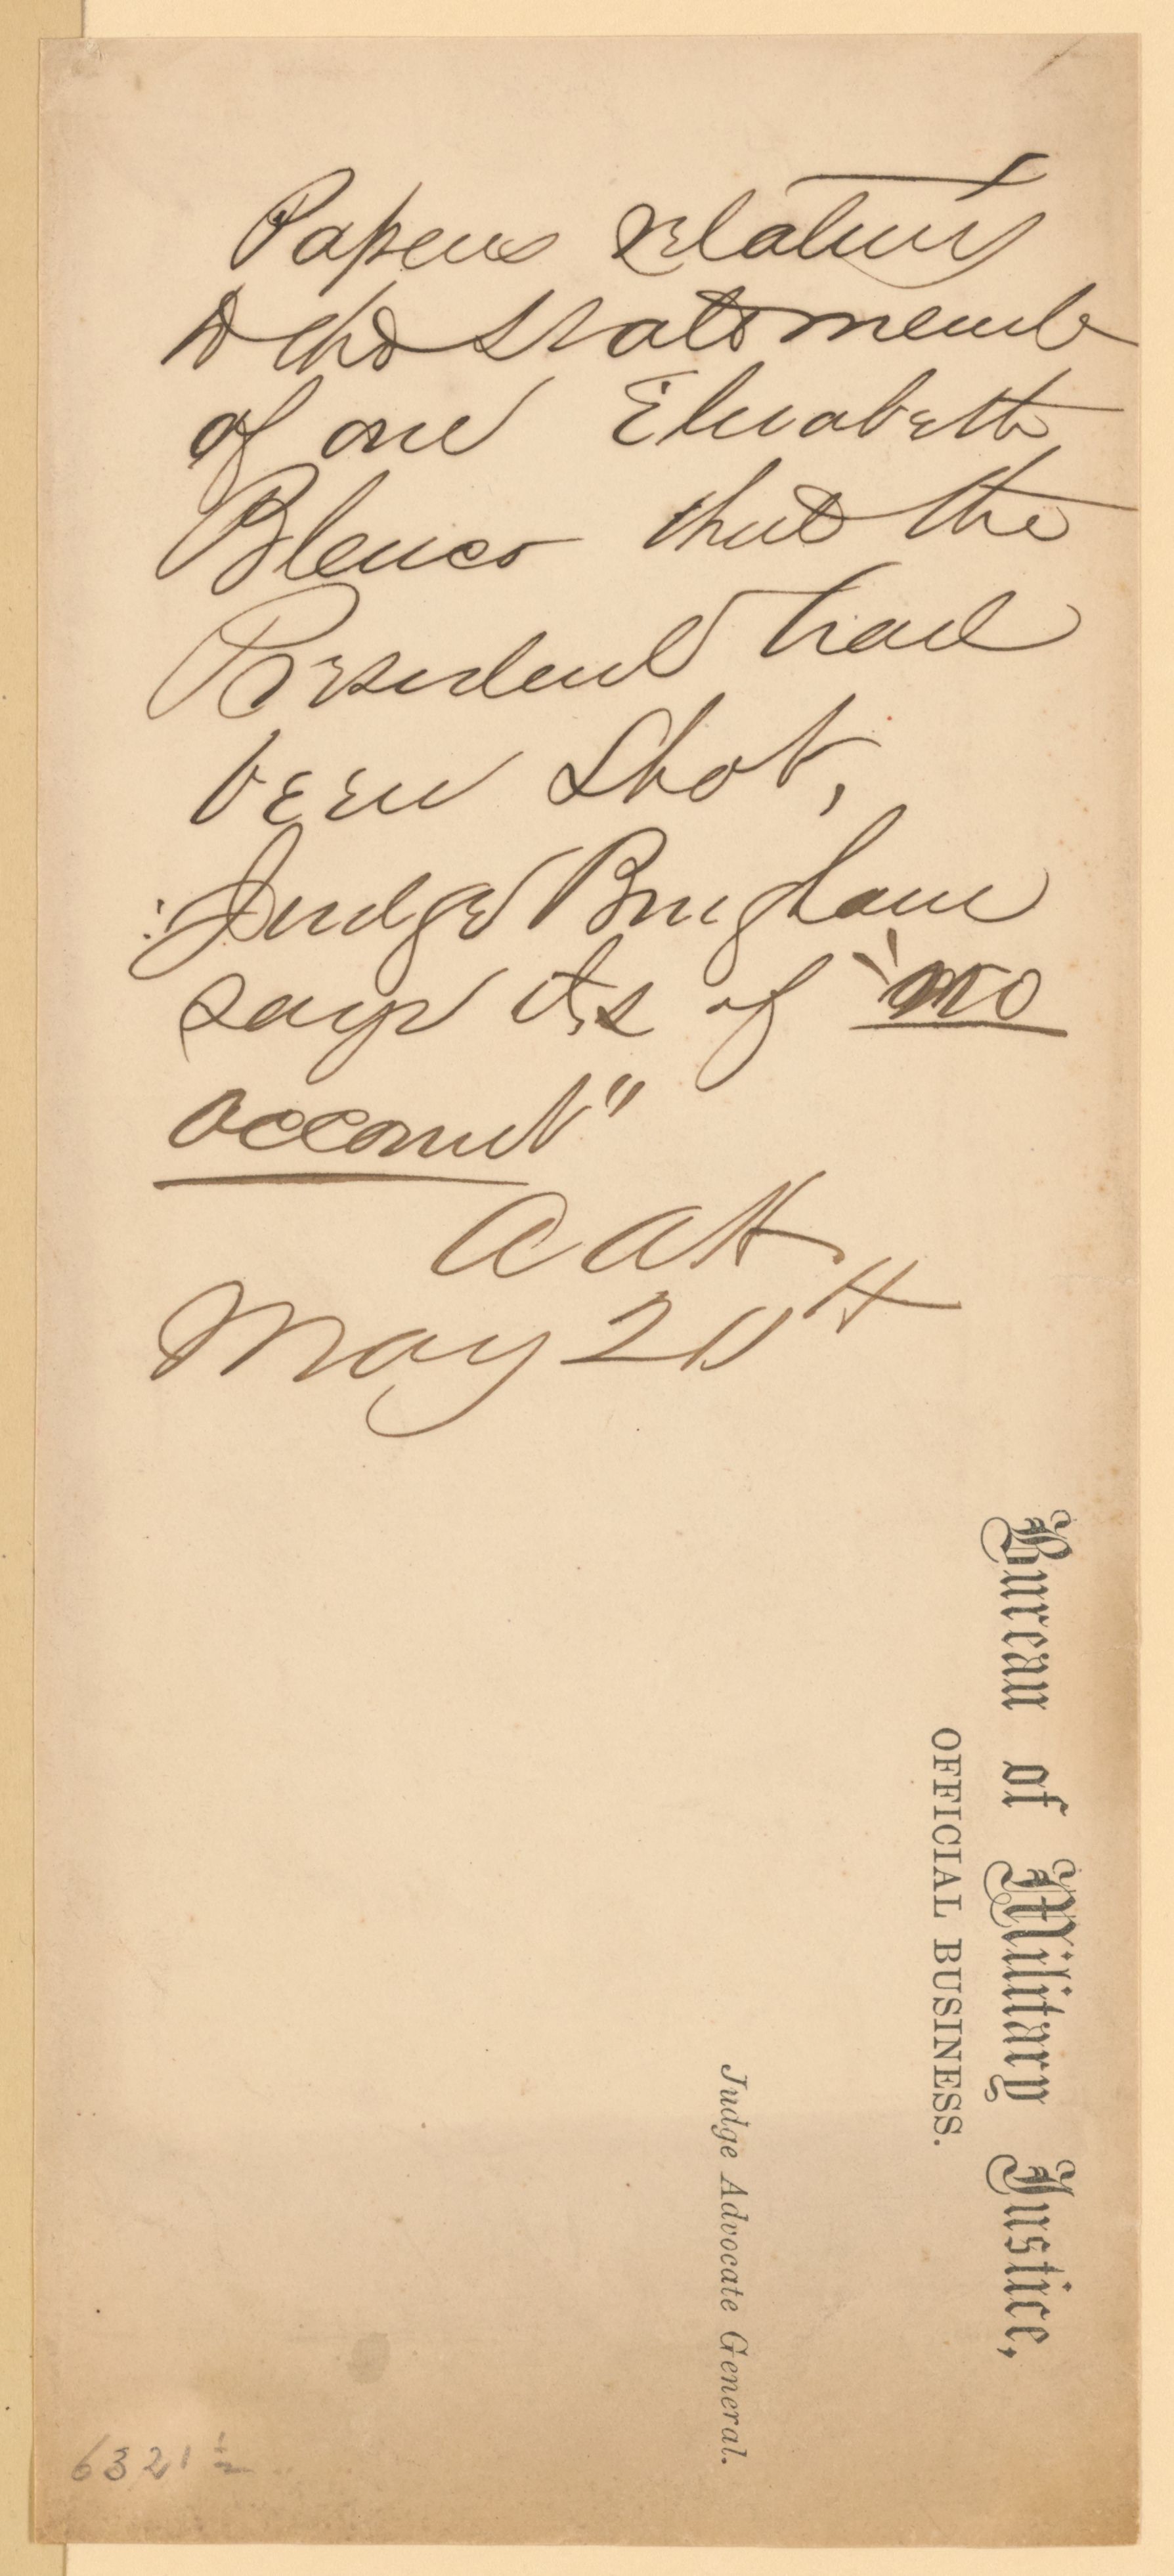 Papers relating
to the statement
of one Elizabeth
Blenco that the
President had
been shot,
Judge Bingham
says its of "no
account"
A A H
May 20th
Bureau of Military Justice,
OFFICIAL BUSINESS.
Judge Advocate General.
6321 ½